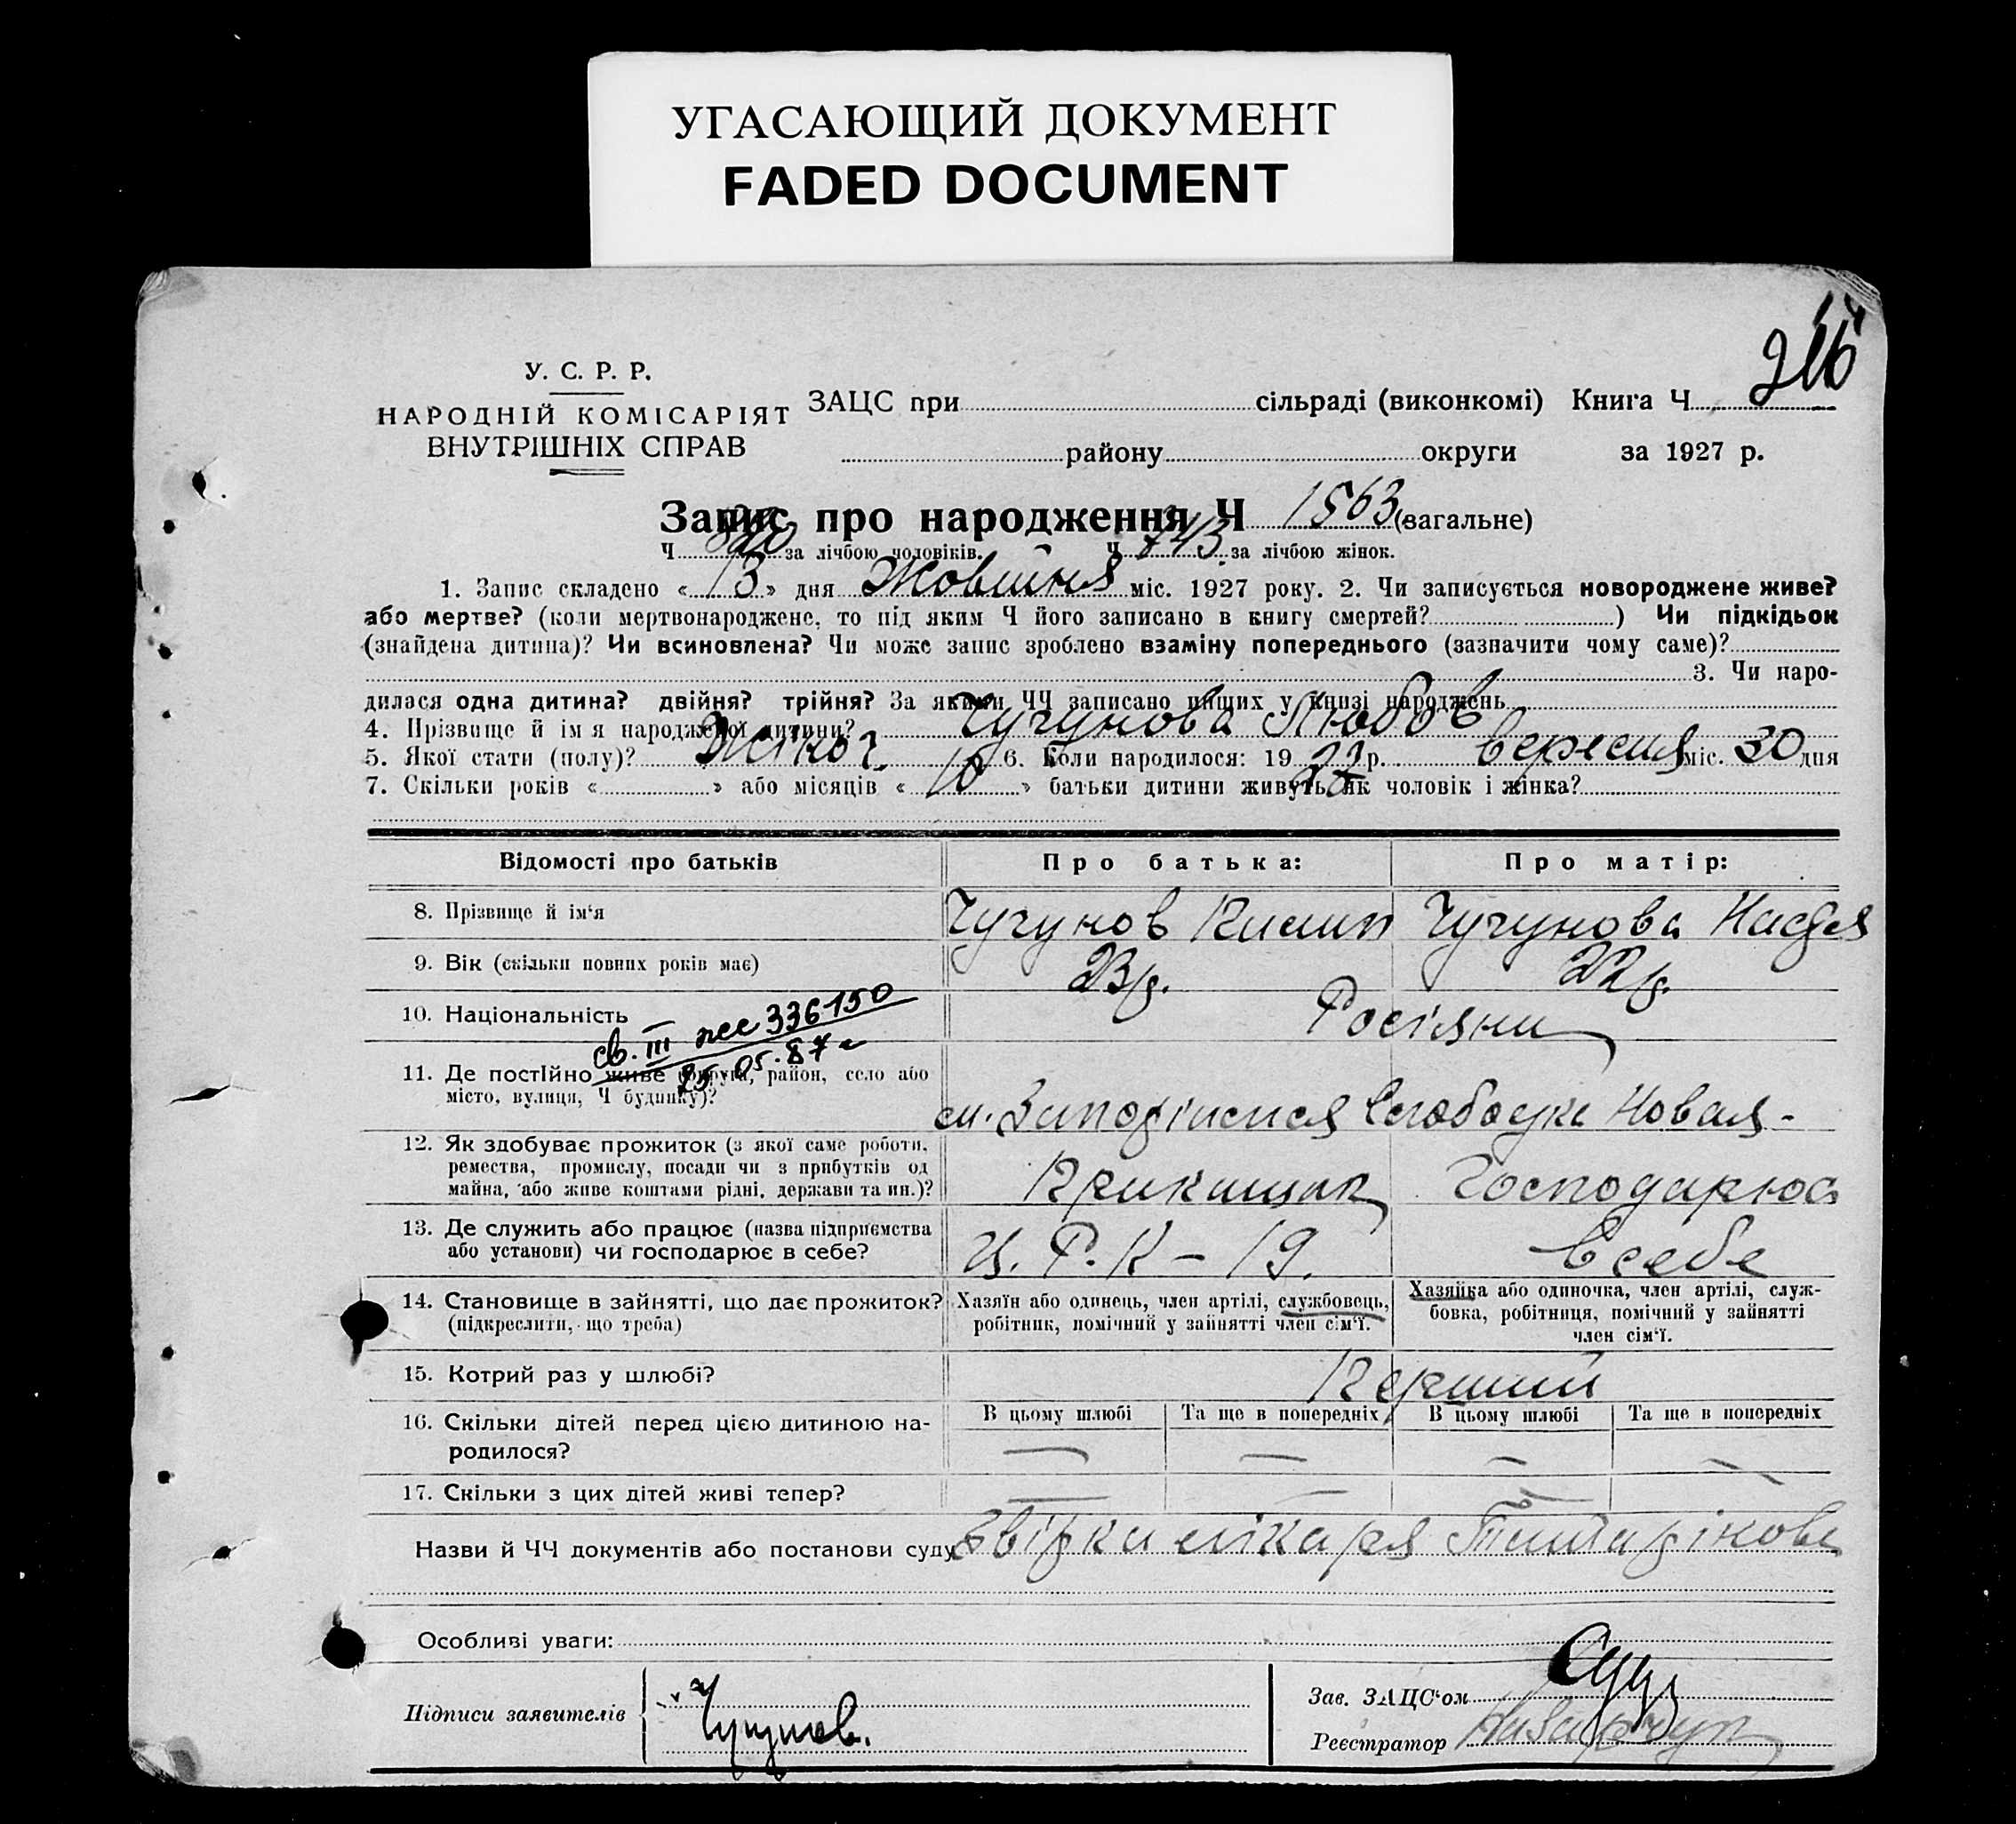 УГАСАЮЩИЙ ДОКУМЕНТ
FADED DOCUMENT
У. С. Р. Р.
НАРОДНІЙ КОМІСАРІЯТ
ВНУТРІШНІХ СПРАВ
ЗАЦС при сільраді (виконкомі) Книга Ч
району округи за 1927 р.
Запис про народження Ч 1563 (загальне)
Ч 820 за лічбою чоловіків. Ч 743 за лічбою жінок.
1. Запис складено « 13 » дня Жовтня міс. 1927 року. 2. Чи записується новороджене живе?
або мертве? (коли мертвонароджене, то під яким Ч його записано в книгу смертей? ) Чи підкідьок
(знайдена дитина)? Чи всиновлена? Чи може запис зроблено взаміну попереднього (зазначити чому саме)?
3. Чи наро-
дилася одна дитина? двійня? трійня? За якими ЧЧ записано инших у книзі народжень
4. Прізвище й ім я народженої дитини? Чугунова Любов
5. Якої стати (полу)? Жіноч. 6. Коли народилося: 19 27 р. вересня міс. 30 дня
7. Скільки років « » або місяців « 10 » батьки дитини живуть як чоловік і жінка?
Відомості про батьків Про батька: Про матір:
8. Прізвище й ім‘я Чугунов Чугунова Надя
9. Вік (скільки повних років має) 23 р. 22 р.
10. Національність Росіяни
св. III 336150
25.05.87 г
11. Де постІйно живе (округа, район, село або
місто, вулиця, Ч будинку)?
Слободка Новая -
12. Як здобуває прожиток (з якої саме роботи,
ремества, промислу, посади чи з прибутків од
майна, або живе коштами рідні, держави та ин.)?
Прикащик Господарює
13. Де служить або працює (назва підприємства
або установи) чи господарює в себе?
Ц. Р. К - 19. в себе
14. Становище в зайнятті, що дає прожиток?
(підкреслити, що треба)
Хазяїн або одинець, член артілі, службовець,
робітник, помічний у зайнятті член сім‘ї.
Хазяйка або одиночка, член артілі, служ-
бовка, робітниця, помічний у зайнятті
член сім‘ї.
15. Котрий раз у шлюбі? Перший
16. Скільки дітей перед цією дитиною на-
родилося?
В цьому шлюбі Та ще в попередніх В цьому шлюбі Та ще в попередніх
— — — —
17. Скільки з цих дітей живі тепер?
— — — —
Назви й ЧЧ документів або постанови суду Звірка лікаря
Особливі уваги:
Підписи заявителів Чугунов.
Зав. ЗАЦС‘ом
Реєстратор